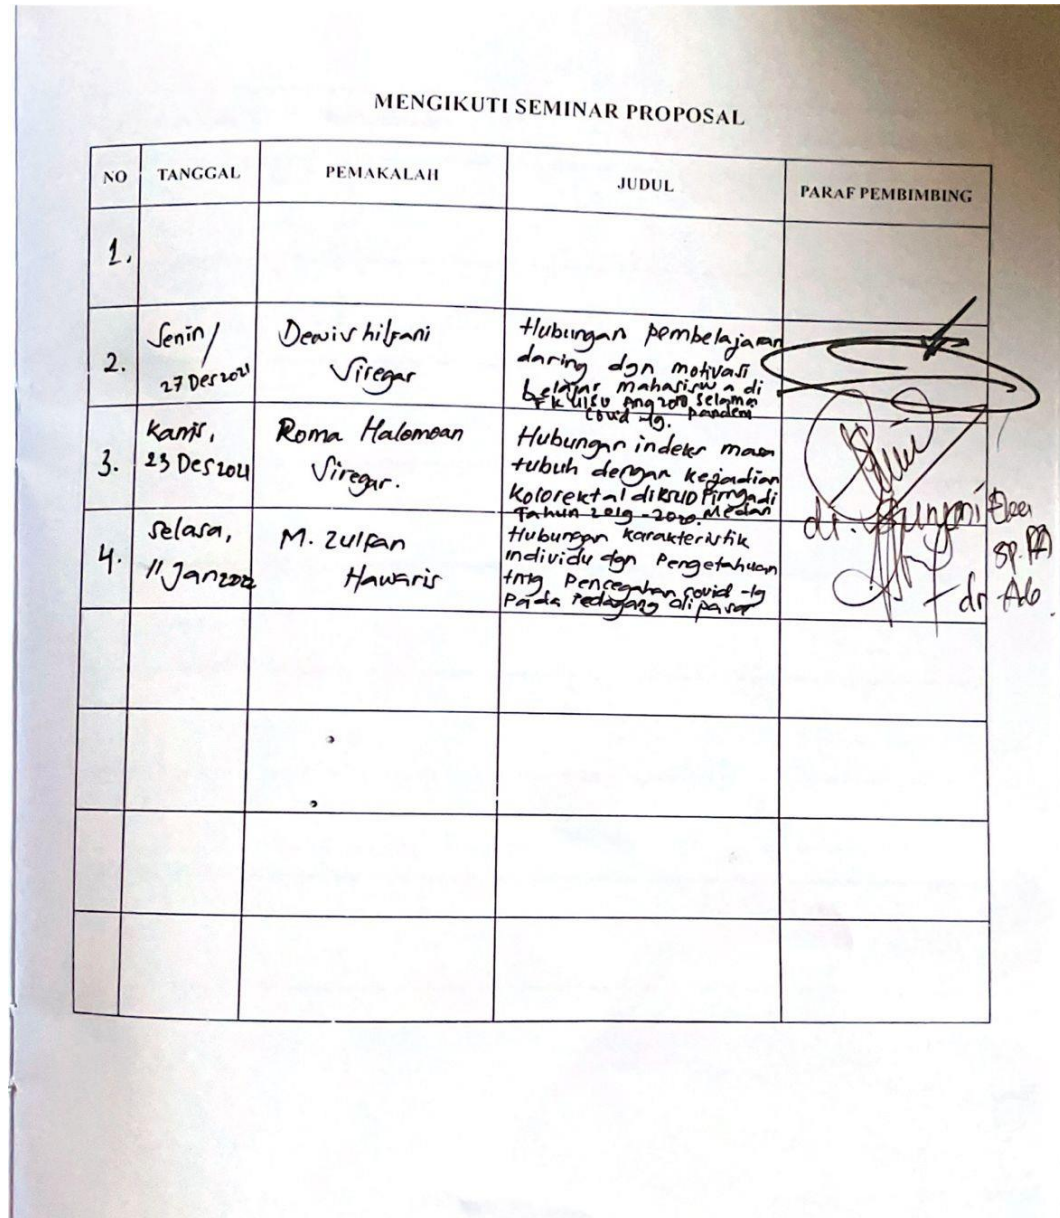 MENGIKUTI SEMINAR PROPOSAL
NO TANGGAL PEMAKALAH JUDUL PARAF PEMBIMBING
1.
2.
Senin /
27 Des 2021
Dewi Shilfani
Siregar
Hubungan pembelajaran
daring dgn motivasi
belajar mahasiswa di
FK UISU Ang 2018 selama
Covid -19. pandemi
3.
Kamis,
23 Des 2021
Roma Halomoan
Siregar.
Hubungan indeks masa
tubuh dengan kejadian
kolorektal di RSUD Pirngadi
Tahun 2019 - 2020. Medan
4.
Selasa,
11 Jan 2022
M. Zulfan
Hawaris
Hubungan karakteristik
individu dgn Pengetahuan
tntg Pencegahan covid -19
Pada Pedagang di pasar
dr.
Sp. PA
dr